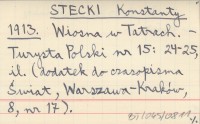 STECKI Konstanty
1913. Wiosna w Tatrach. -
Turysta Polski nr 15: 24-25,
il. (dodatek do czasopisma
Świat, Warszawa-Kraków,
8, nr 17).